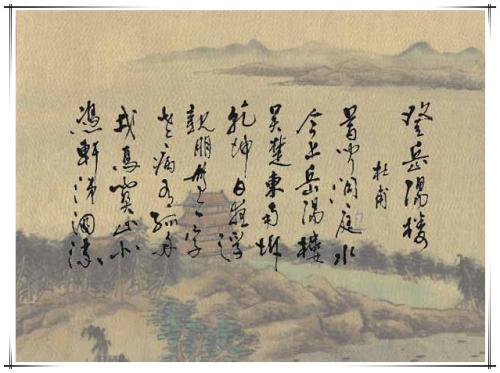 登岳陽樓
杜甫
昔聞洞庭水
今上岳陽樓
吳楚東南坼
乾坤日夜浮
親朋無一字
老病有孤舟
戎馬關山北
憑軒涕泗流